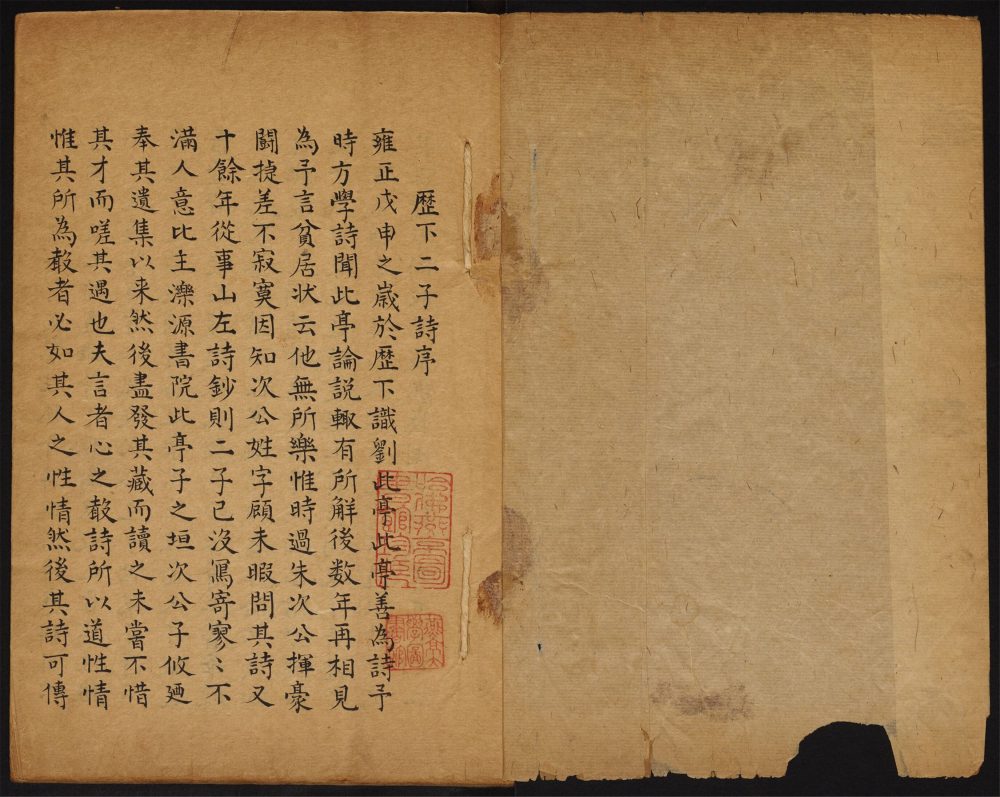 歷下二子詩序
雍正戊申之嵗於歷下識劉此亭此亭善為詩予
時方學詩聞此亭論説輙有所解後数年再相見
為予言貧居状云他無所樂惟時過朱次公揮豪
鬬㨗差不寂寞因知次公姓字顧未暇問其詩又
十餘年從事山左詩鈔則二子已沒寫寄寥〻不
滿人意比主濼源書院此亭子之垣次公子攸廼
奉其遺集以来然後盡發其藏而讀之未嘗不惜
其才而嗟其遇也夫言者心之聲詩所以道性情
惟其所為聲者必如其人之性情然後其詩可傳
哈佛燕京圖
書館珍藏